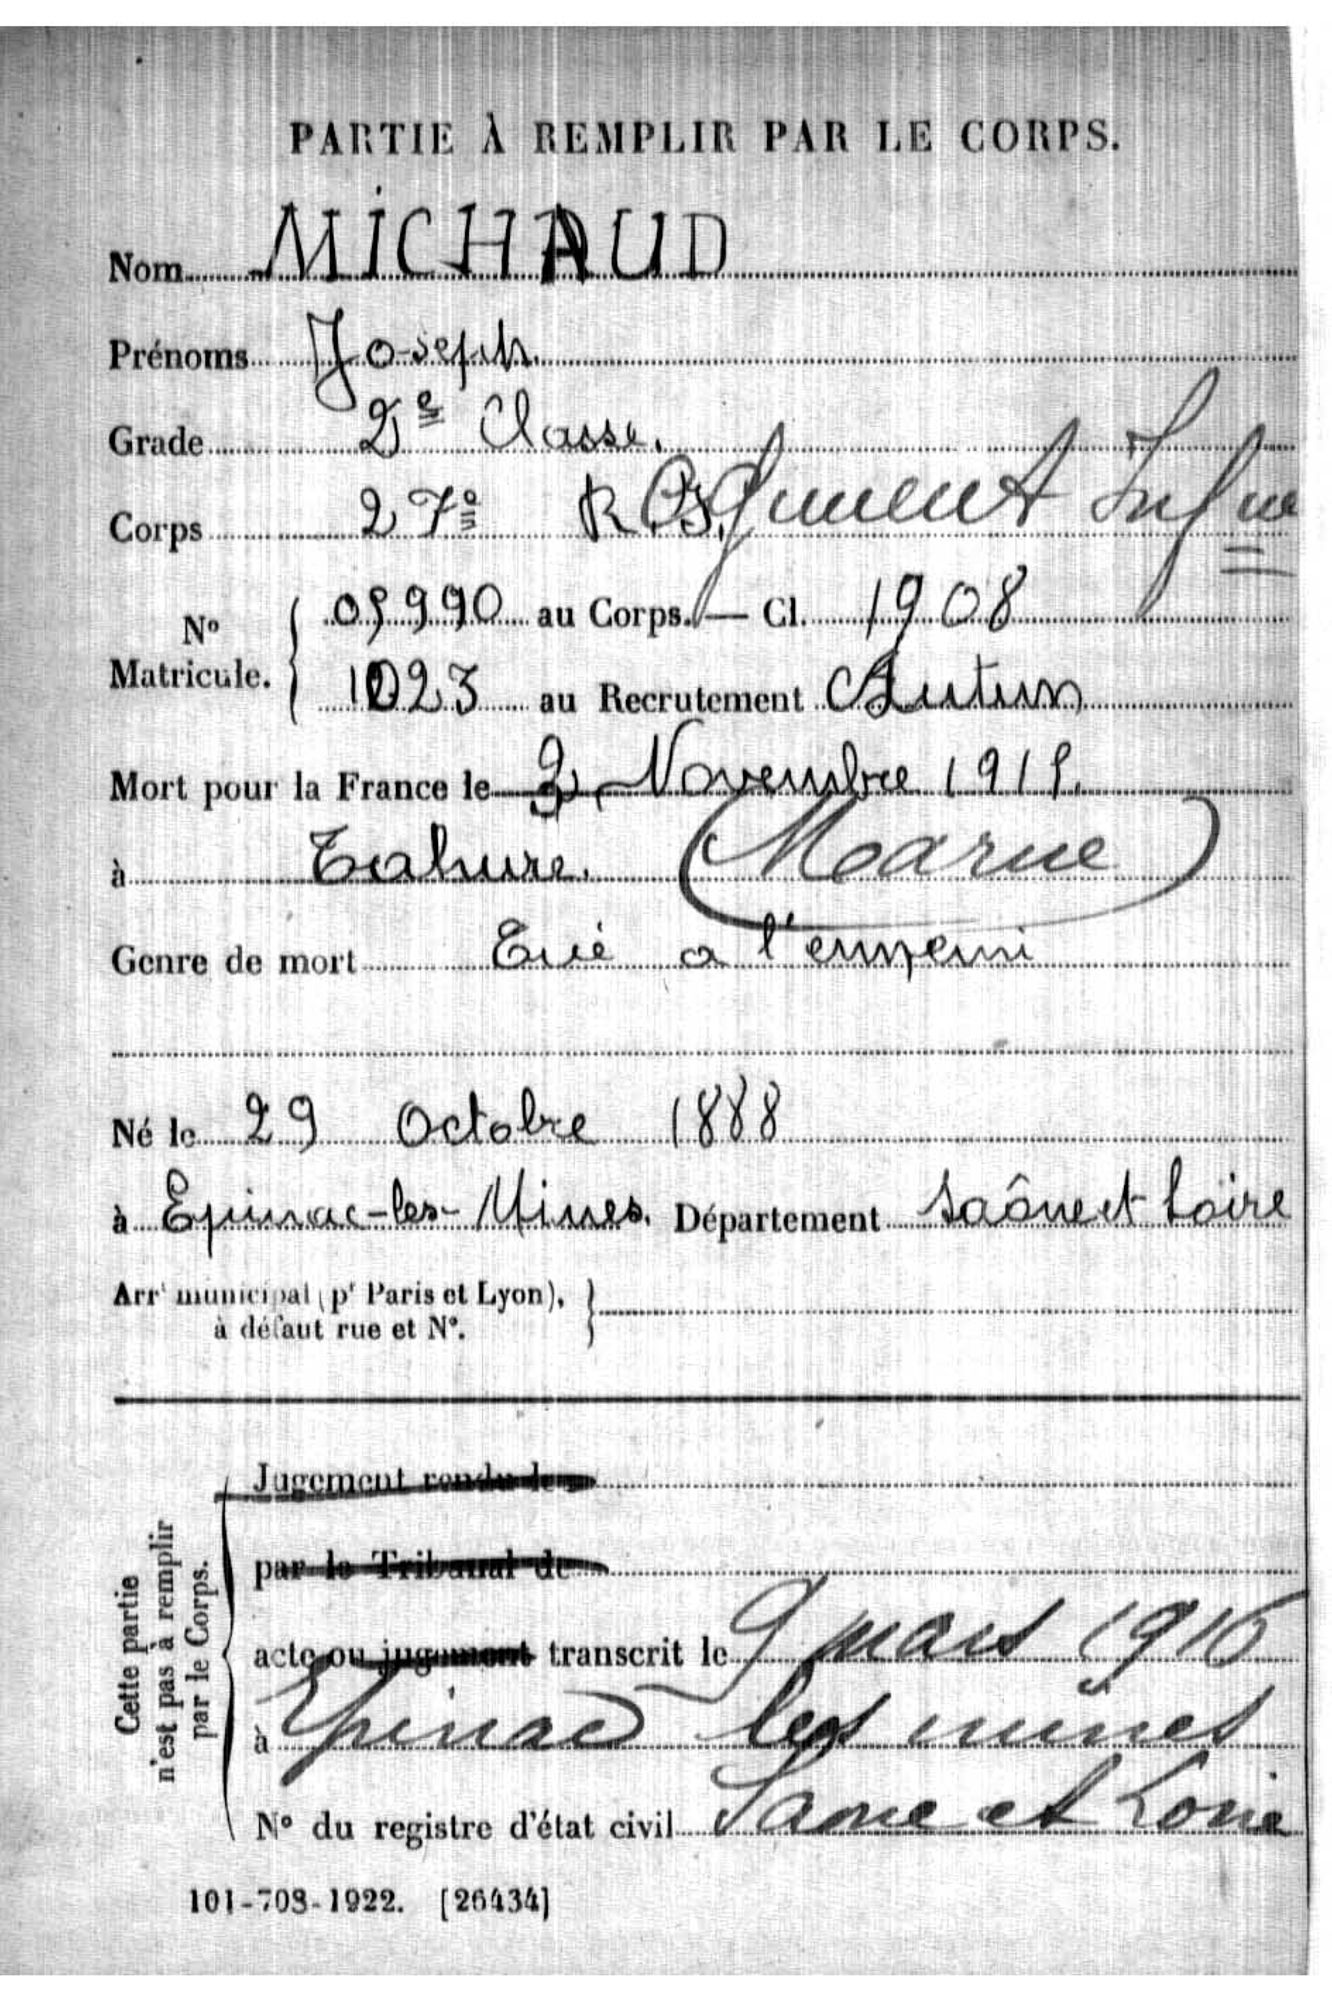 PARTIE À REMPLIR PAR LE CORPS.
Nom MICHAUD
Prénoms Joseph
Grade 2e Classe.
Corps 27e Régiment Inf rie
No Matricule. 05990 au Corps. — Cl. 1908
1023 au Recrutement Autun
Mort pour la France le Novembre 1915.
à Tahure. (Marne)
Genre de mort Tué a l'ennemi
Né le 29 Octobre 1888
à Epinac-les-Mines. Département Saône et Loire
Arrt municipal (pr Paris et Lyon),
à défaut rue et No.
Cette partie
n'est pas à remplir
par le Corps.
Jugement rendu le
par le Tribunal de
acte ou jugement transcrit le 9 mars 1916
à Epinac les mines
No du registre d'état civil Saone et Loire
101-708-1922. [26434]